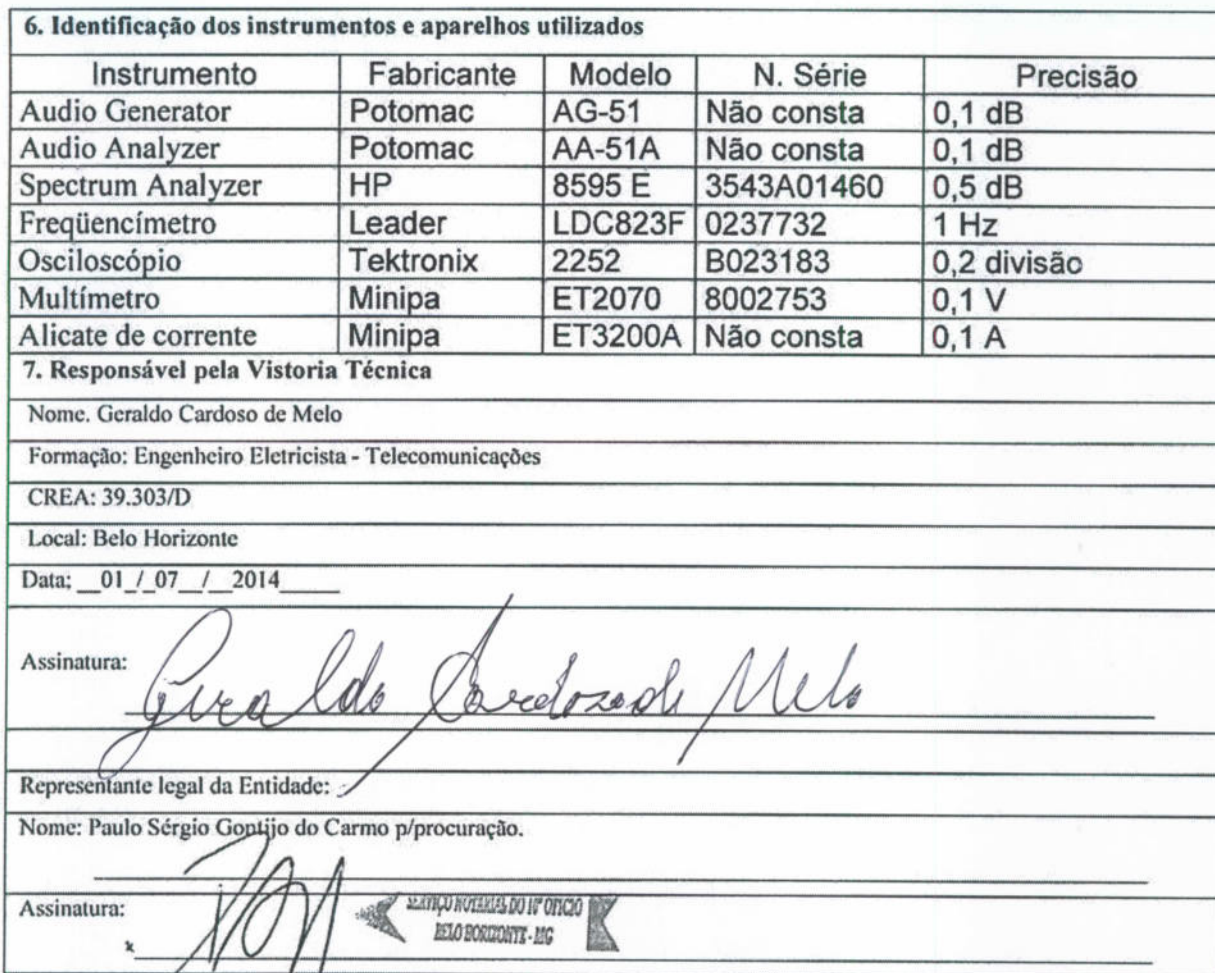 6. Identificação dos instrumentos e aparelhos utilizados
Instrumento Fabricante Modelo N. Série Precisão
Audio Generator Potomac AG-51 Não consta 0,1 dB
Audio Analyzer Potomac AA-51A Não consta 0,1 dB
Spectrum Analyzer HP 8595 E 3543A01460 0,5 dB
Freqüencímetro Leader LDC823F 0237732 1 Hz
Osciloscópio Tektronix 2252 B023183 0,2 divisão
Multímetro Minipa ET2070 8002753 0,1 V
Alicate de corrente Minipa ET3200A Não consta 0,1 A
7. Responsável pela Vistoria Técnica
Nome. Geraldo Cardoso de Melo
Formação: Engenheiro Eletricista - Telecomunicações
CREA: 39.303/D
Local: Belo Horizonte
Data: __01_/_07__/__2014_____
Assinatura: Geraldo Cardoso de Melo
Representante legal da Entidade:
Nome: Paulo Sérgio Gontijo do Carmo p/procuração.
Assinatura:
SERVIÇO NOTARIAL DO 10º OFICIO
BELO HORIZONTE - MG
x